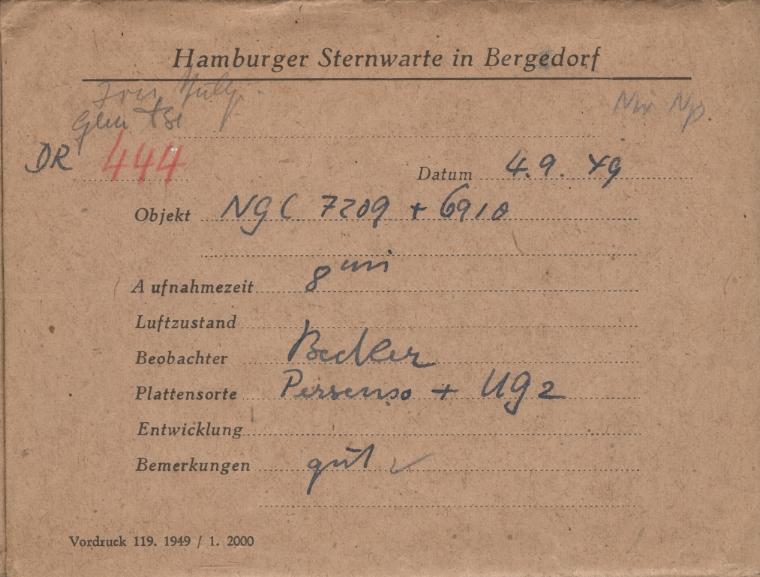 Hamburger Sternwarte in Bergedorf
DR 444
Datum 4.9.49
Objekt NGC 7209 + 6910
Aufnahmezeit 8 min
Luftzustand
Beobachter Becker
Plattensorte Persenso + UG2
Entwicklung
Bemerkungen gut ✓
Vordruck 119. 1949 / 1. 2000